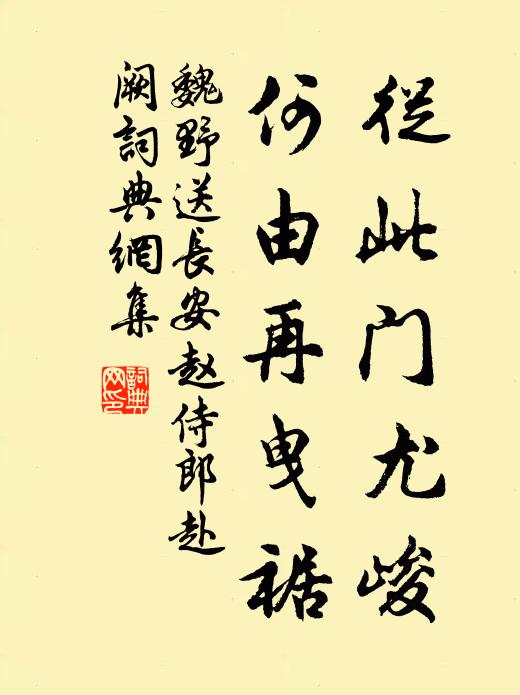 從此门尤峻
何由再曳裾
魏野送長安赵侍郎赴
阙詞典網集
詞典
网印